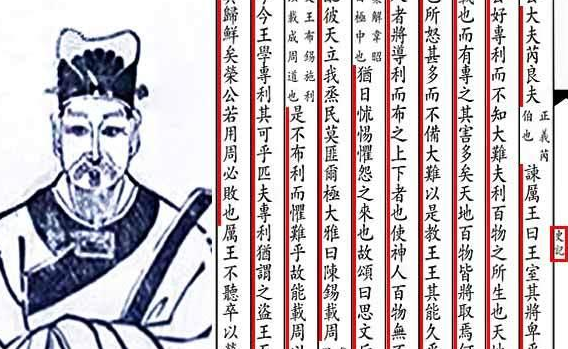 大夫芮良夫正義芮伯也諫厲王曰王室其將卑
史記
好專利而不知大難夫利百物之所生也天地
也而有專之其害多矣天地百物皆將取焉何
也所怒甚多而不備大難以是教王王其能久乎
者將導利而布之上下者也使神人百物無不
解韋昭曰極中也猶日怵惕懼怨之來也故頌曰思文后
配彼天立我烝民莫匪爾極大雅曰陳錫載周
王布錫施利載成周道也是不布利而懼難乎故能載周以
今王學專利其可乎匹夫專利猶謂之盜王
歸鮮矣榮公若用周必敗也厲王不聽卒以榮